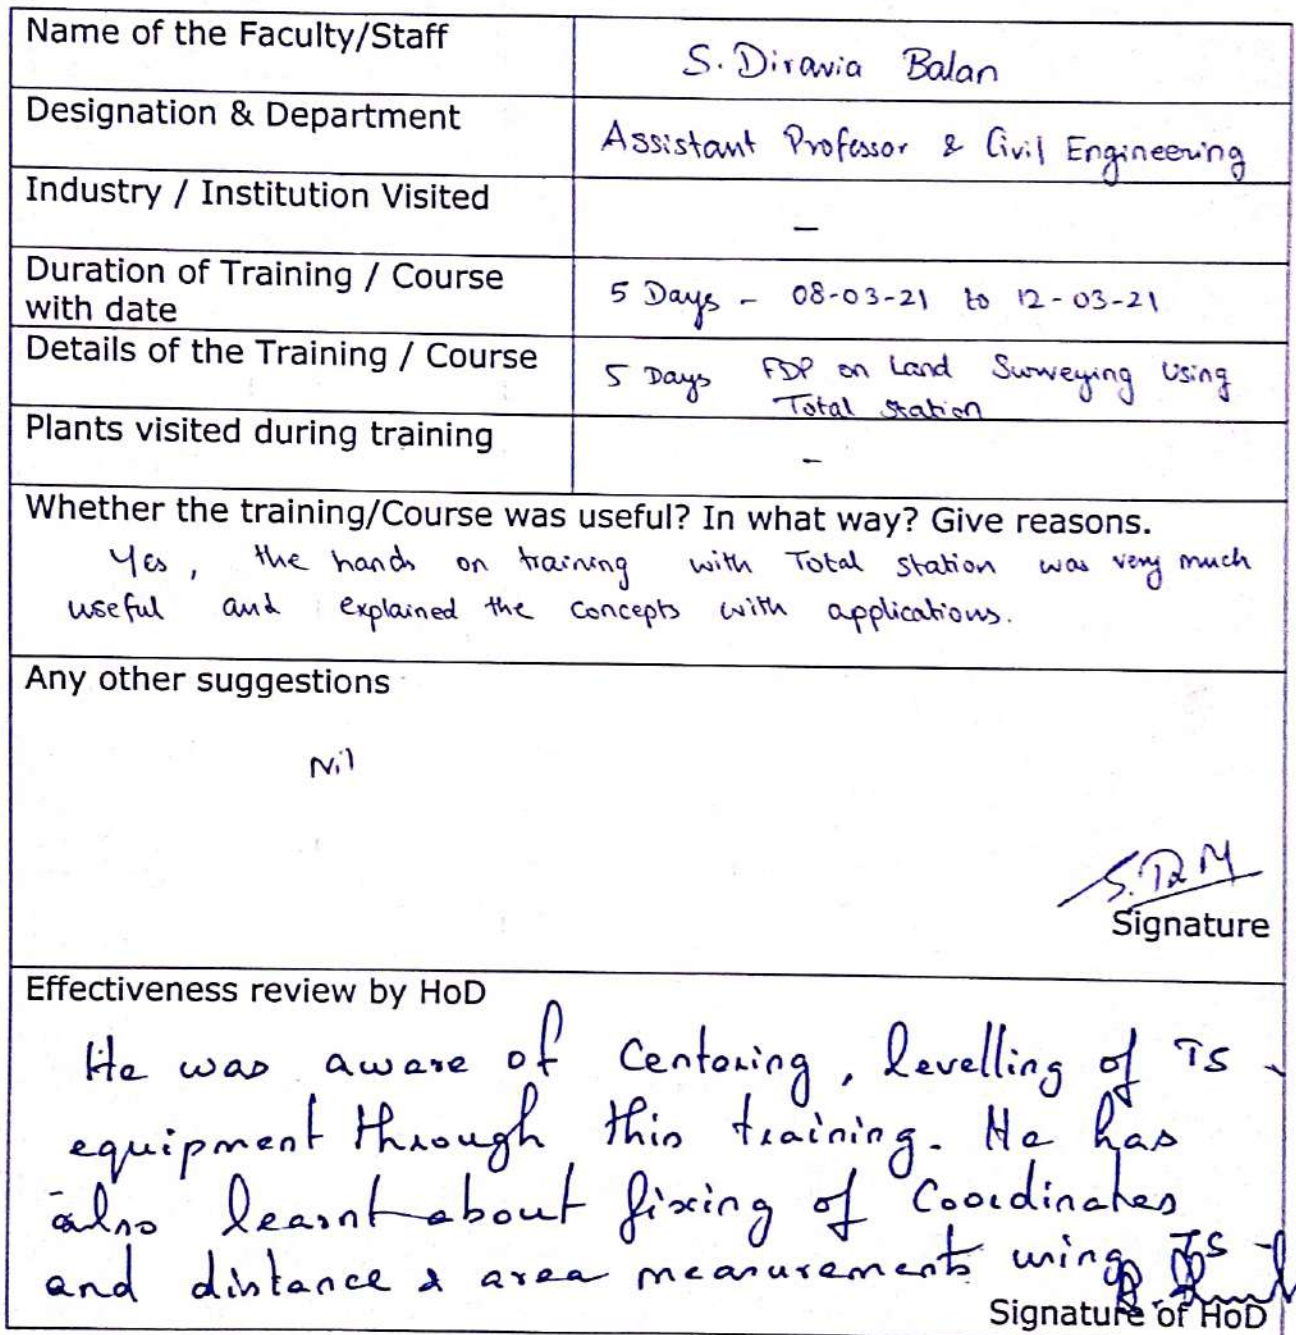 Name of the Faculty/Staff
S. Diravia Balan
Designation & Department
Assistant Professor & Civil Engineering
Industry / Institution Visited
–
Duration of Training / Course
with date
5 Days - 08-03-21 to 12-03-21
Details of the Training / Course
5 Days FDP on Land Surveying Using
Total Station
Plants visited during training
-
Whether the training/Course was useful? In what way? Give reasons.
Yes, the hands on training with Total station was very much
useful and explained the concepts with applications.
Any other suggestions
Nil
Signature
Effectiveness review by HoD
He was aware of Centering, levelling of TS
equipment through this training. He has
also learnt about fixing of Coordinates
and distance & area measurements using TS
Signature of HoD